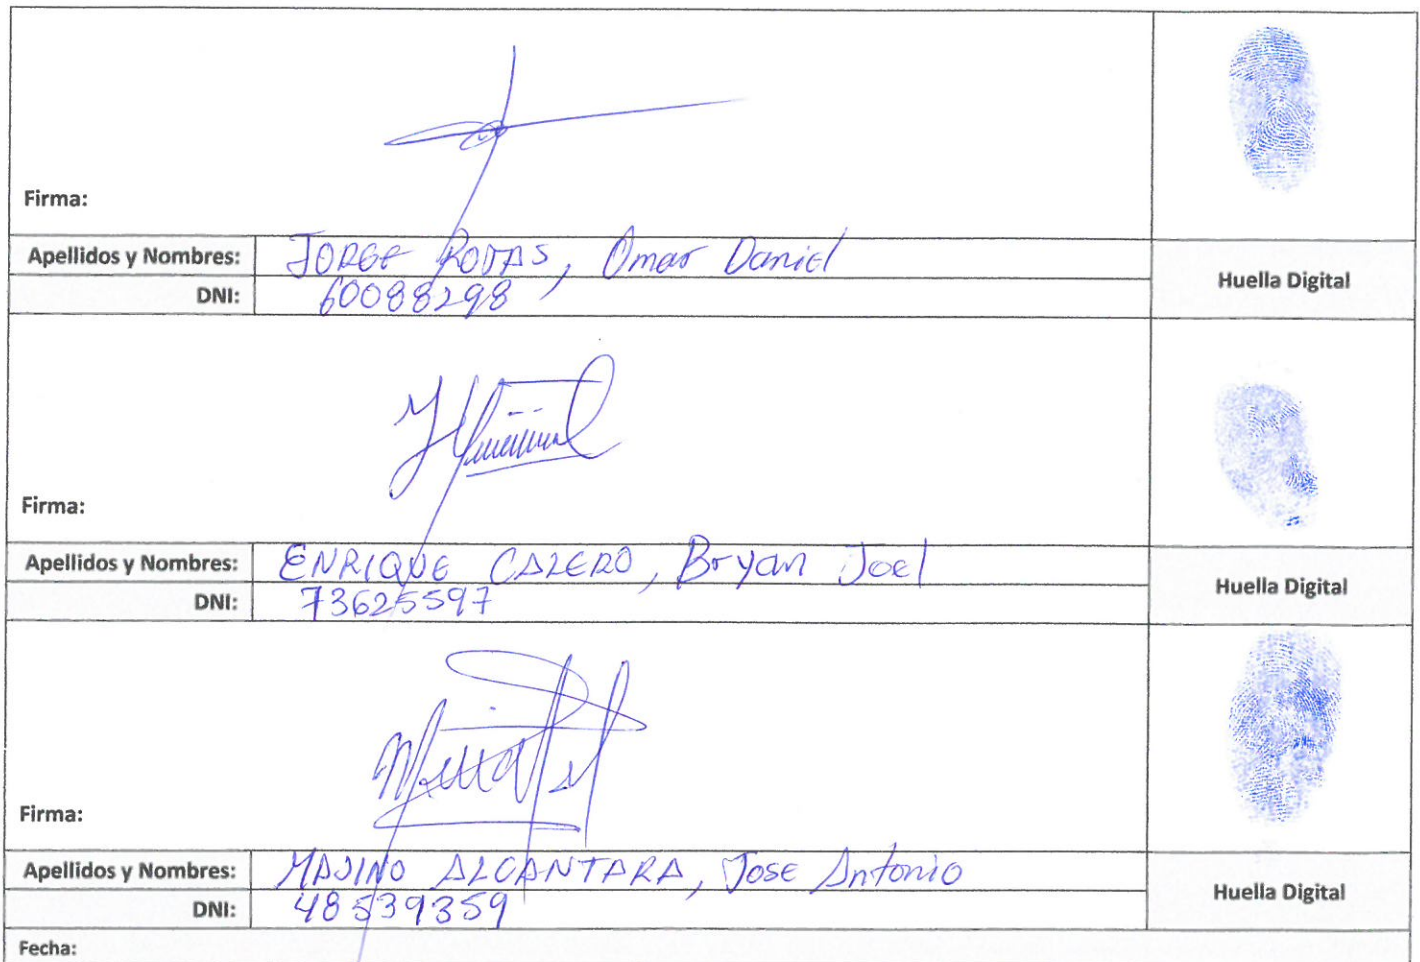 Firma:
Apellidos y Nombres: JORGE RODAS, Omar Daniel
DNI: 60088298
Huella Digital
Firma:
Apellidos y Nombres: ENRIQUE CALERO, Bryan Joel
DNI: 73625597
Huella Digital
Firma:
Apellidos y Nombres: MAJINO ALCANTARA, Jose Antonio
DNI: 48539359
Huella Digital
Fecha: